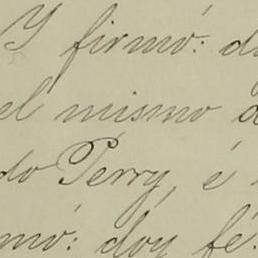 Y firmó: do
el mismo d
do Pérry, é
mó: dóy fé.